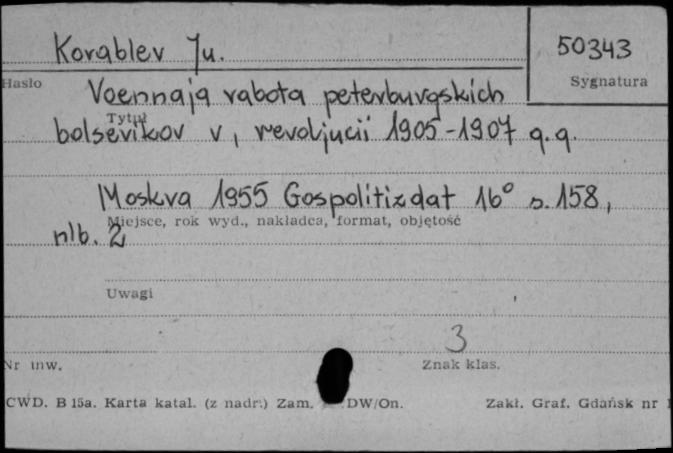 Korablev Ju.
50343
Hasło
Sygnatura
Voennaja rabota peterburgskich
Tytuł
bolsevikov v, revoljucii 1905-1907 g.g.
Moskva 1955 Gospolitizdat 16° s. 158,
Miejsce, rok wyd., nakładca, format, objętość
nlb. 2
Uwagi
3
Nr inw.
Znak klas.
CWD. B 15a. Karta katal. (z nadr.) Zam. DW/On.
Zakł. Graf. Gdańsk nr